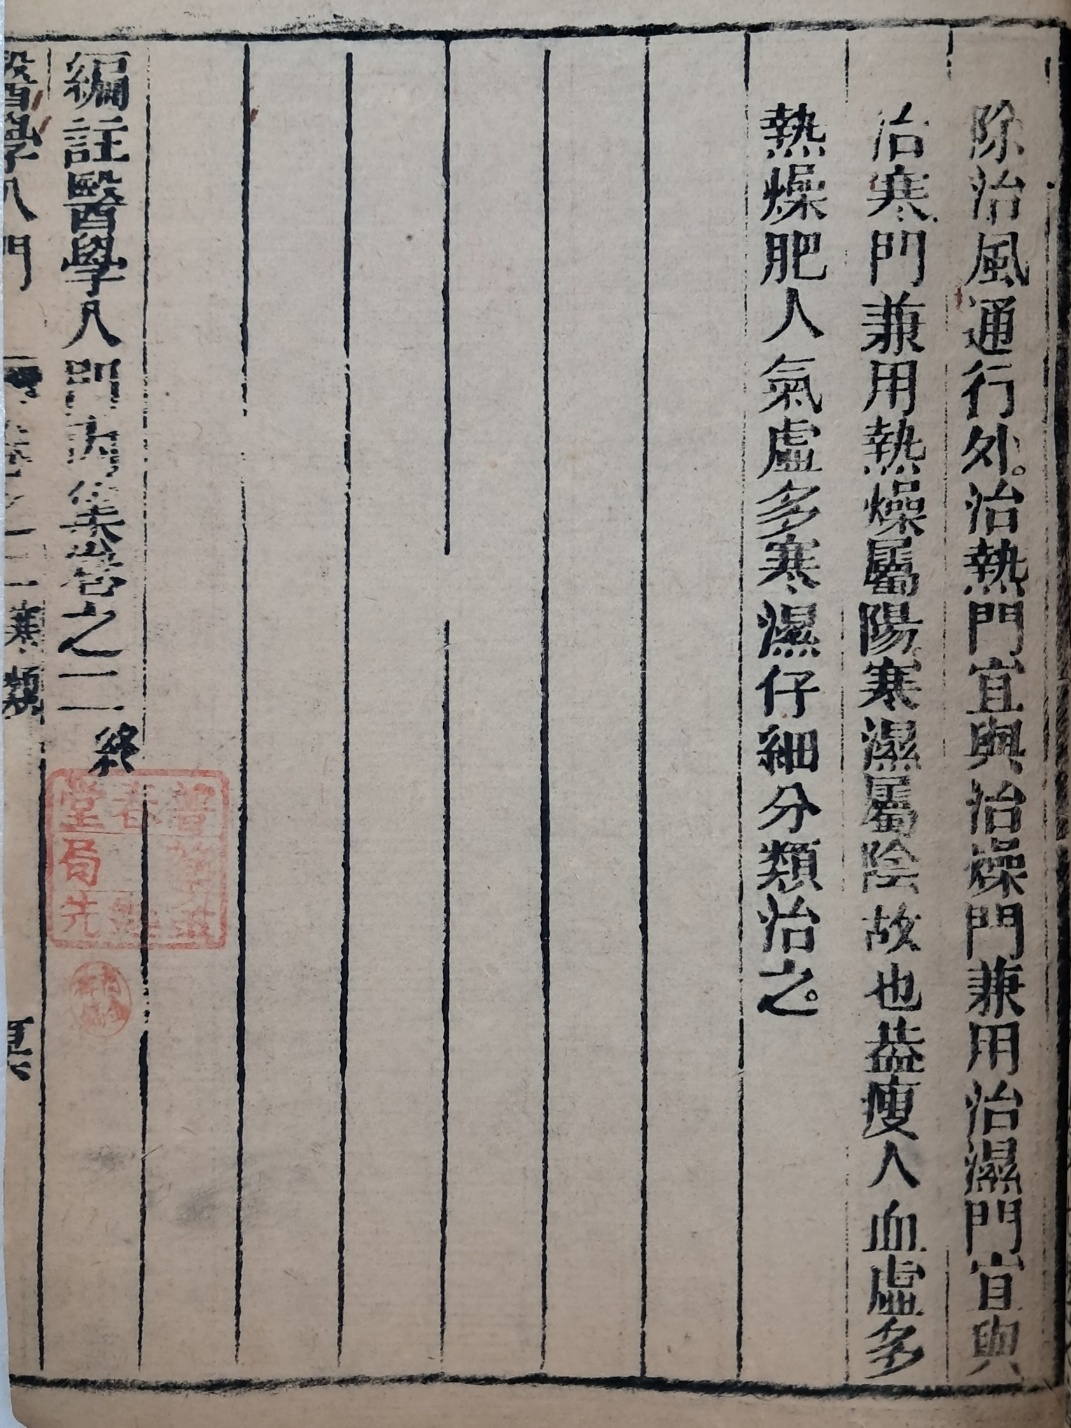 除治風通行外。治熱門宜與治燥門兼用治濕門宜與
治寒門兼用熱燥屬陽寒濕屬陰故也葢瘦人血虛多
熱燥肥人氣虛多寒濕仔細分類治之。
編註醫學入門內集卷之二終
醫學入門 卷之二寒類
普 春 堂 局 先